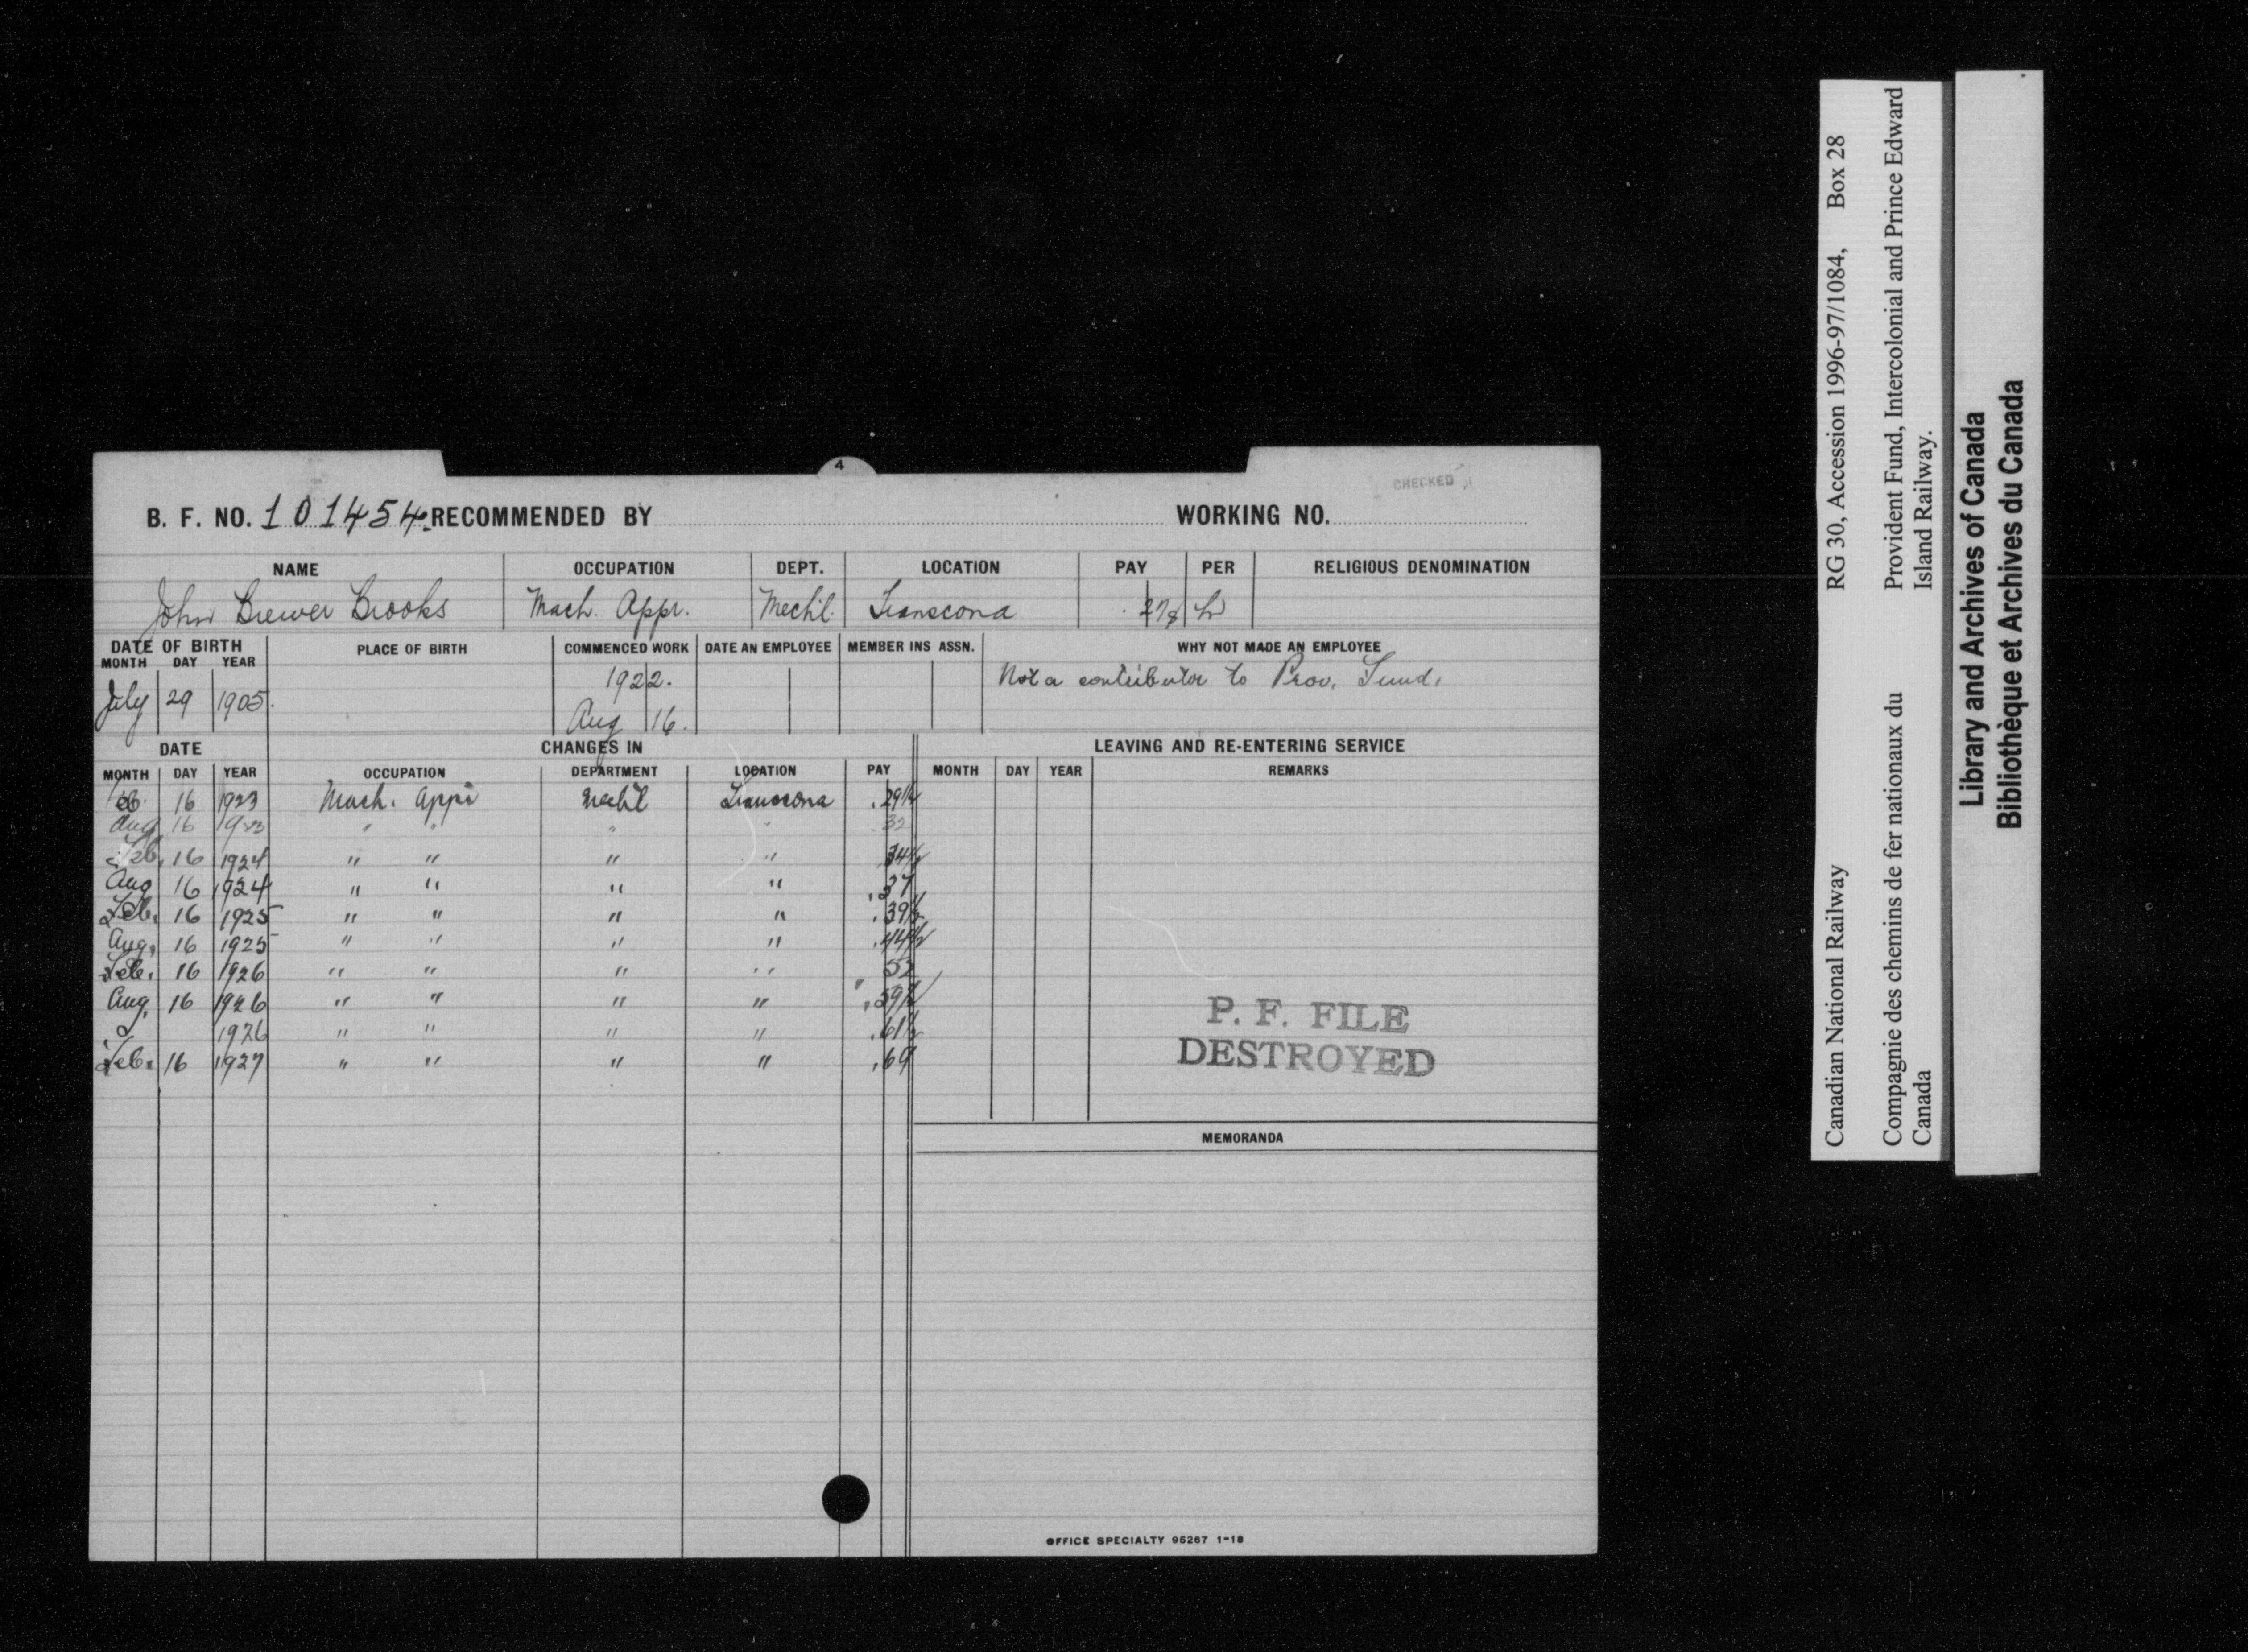 4
CHECKED
B. F. NO. 101454. RECOMMENDED BY WORKING NO.
NAME OCCUPATION DEPT. LOCATION PAY PER RELIGIOUS DENOMINATION
John Brewer Brooks Mach. Appr. Mech'l. Transcona hr
DATE OF BIRTH PLACE OF BIRTH COMMENCED WORK DATE AN EMPLOYEE MEMBER INS ASSN. WHY NOT MADE AN EMPLOYEE
MONTH DAY YEAR
July 29 1905. 1922. Not a contributor to Prov. Fund.
Aug 16.
DATE CHANGES IN LEAVING AND RE-ENTERING SERVICE
MONTH DAY YEAR OCCUPATION DEPARTMENT LOCATION PAY MONTH DAY YEAR REMARKS
Feb. 16 1923 Mach. Appr Mech'l Transcona .29½
Aug 16 1923 " " " " .32
Feb. 16 1924 " " " " 34½
Aug 16 1924 " " " " .37
Feb. 16 1925 " " " " .39½
Aug. 16 1925 " " " " .44½
Feb. 16 1926 " " " " 52
Aug. 16 1926 " " " " .59½
1926 " " " " .61½
Feb. 16 1927 " " " " .69
P. F. FILE
DESTROYED
MEMORANDA
OFFICE SPECIALTY 95267 1-18
Canadian National Railway RG 30, Accession 1996-97/1084, Box 28
Compagnie des chemins de fer nationaux du Provident Fund, Intercolonial and Prince Edward
Canada Island Railway.
Library and Archives of Canada
Bibliothèque et Archives du Canada